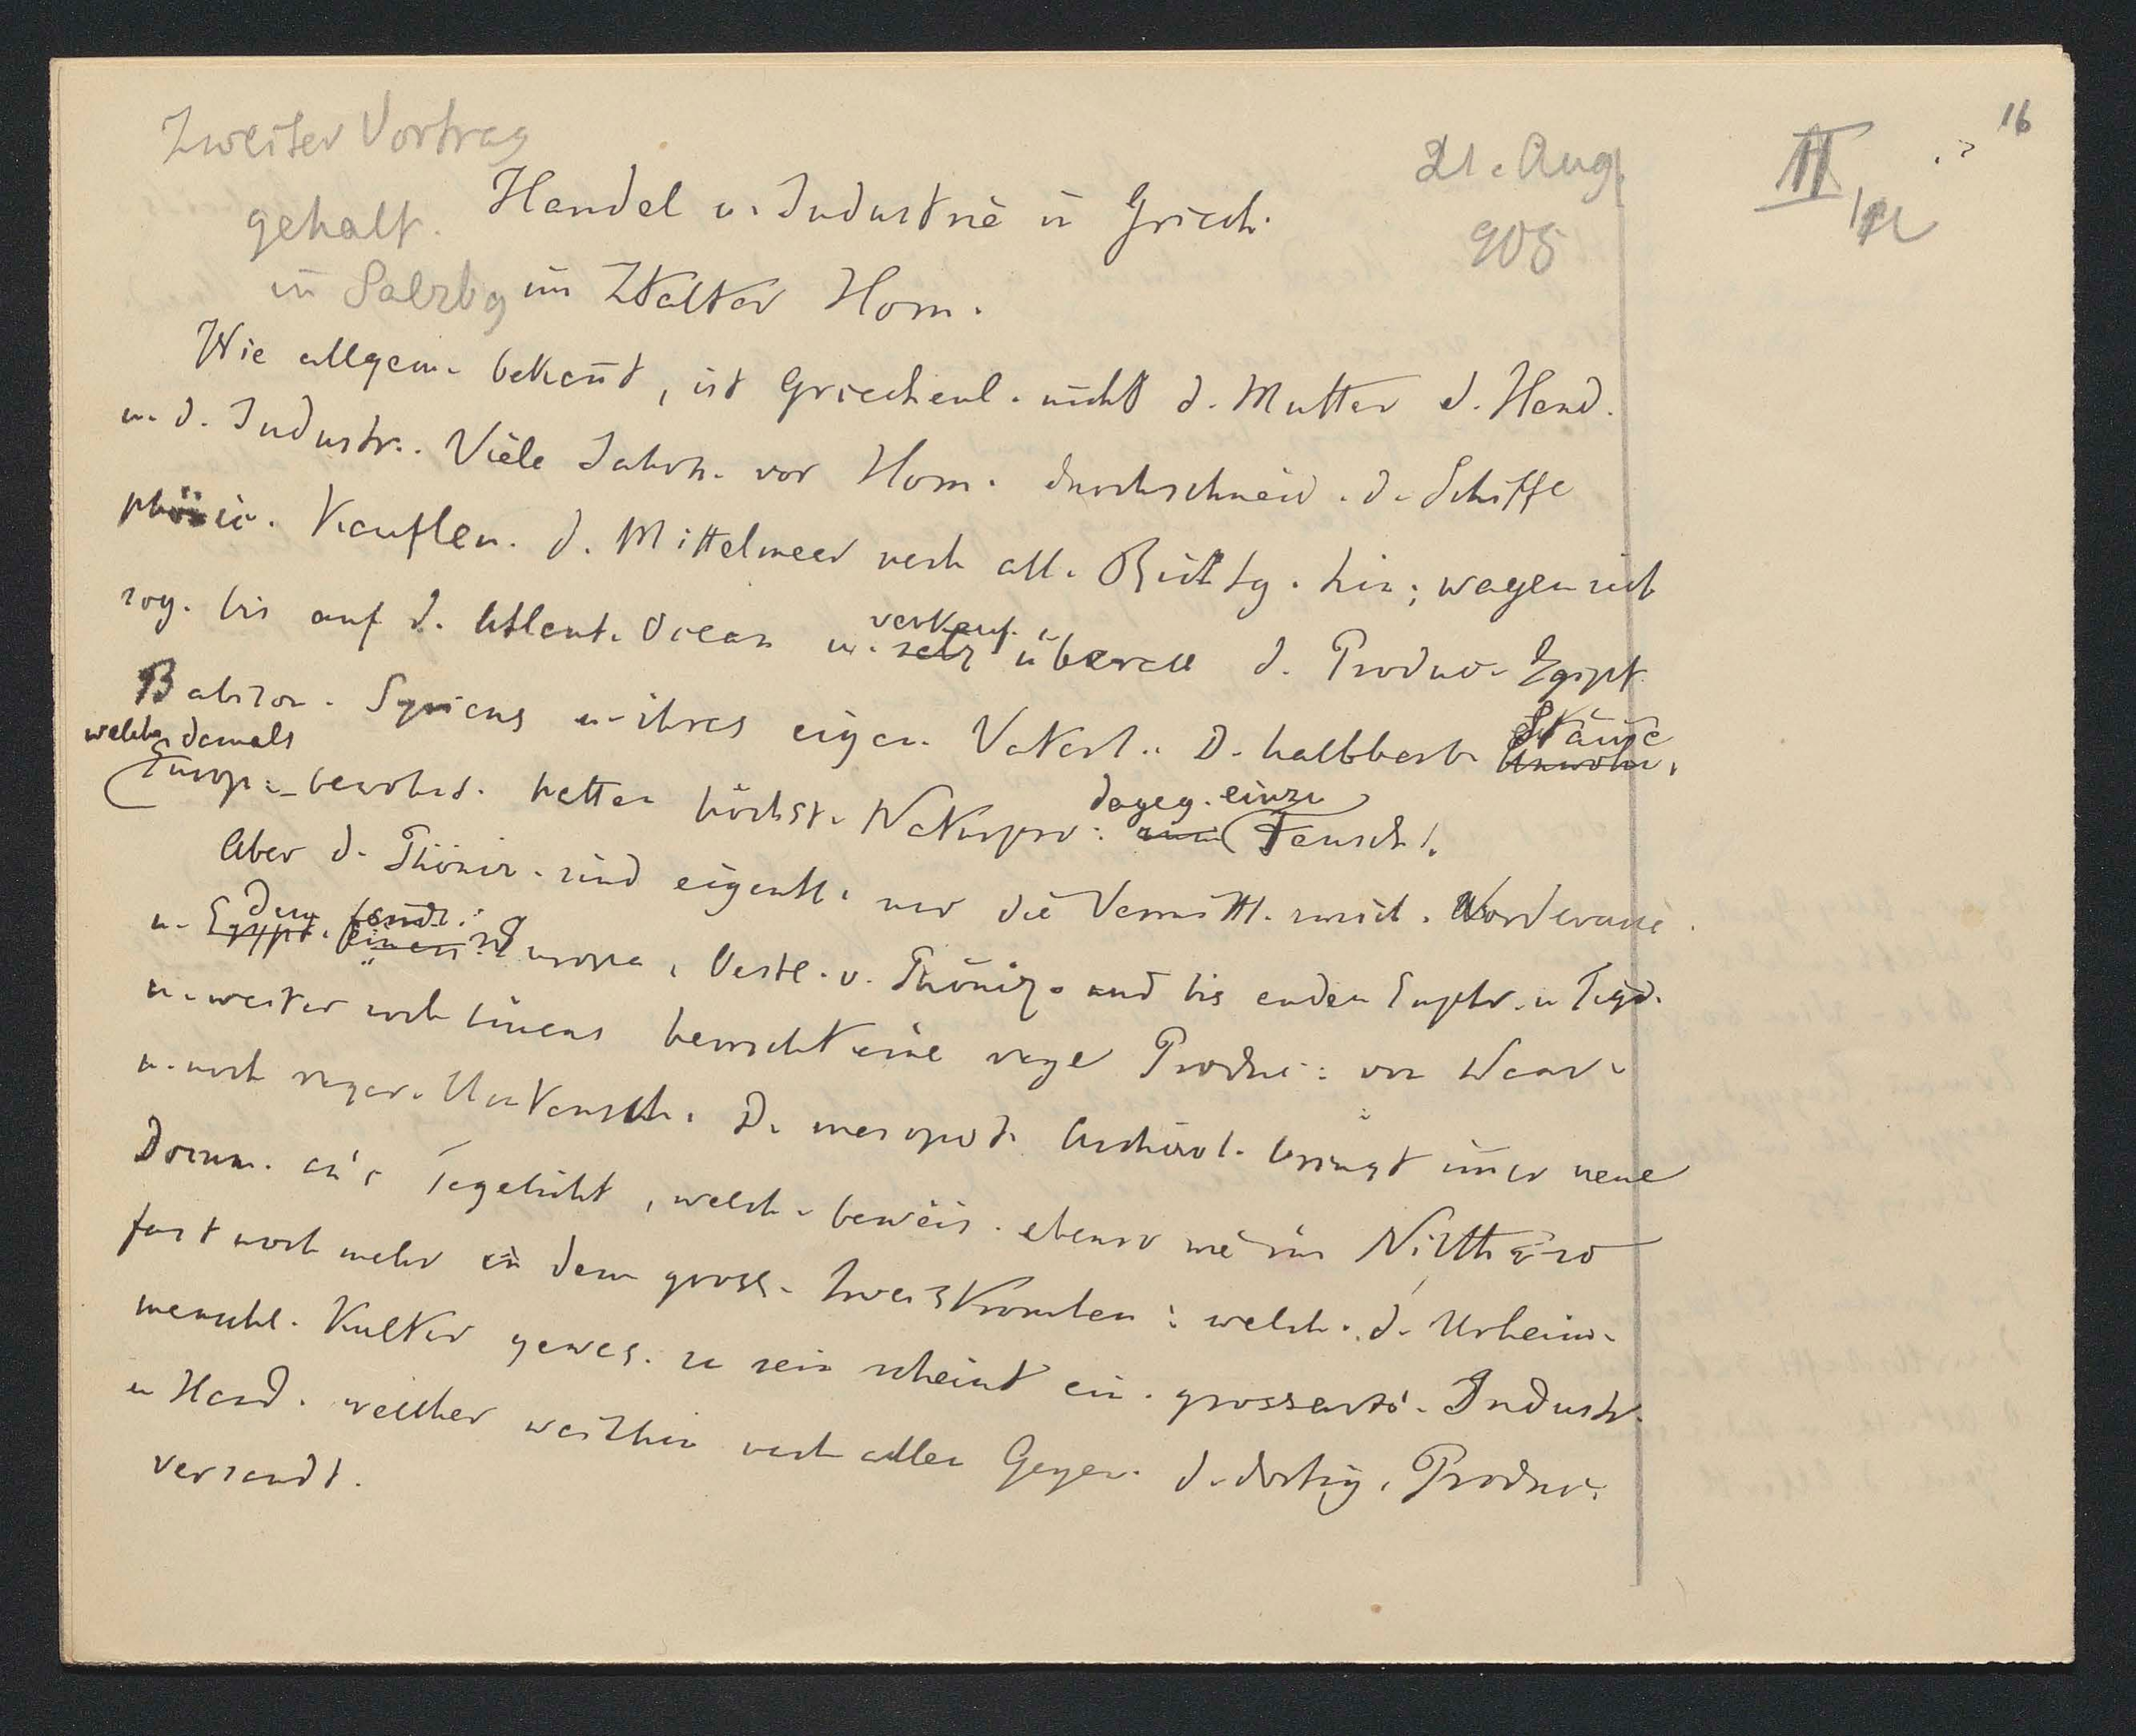 16
Zweiter Vortrag
21. Aug.
II
gehalt. Handel u. Industrie in Griech.
905
in Salzbg im Zeitalter Hom.
Wie allgem. bekannt, ist Griechenl. nicht d. Mutter d. Hand.
u. d. Industr.. Viele Jahrh. vor Hom. durchschneid. d. Schiffe
phönic. Kaufleu. d. Mittelmeer nach all. Richtg. hin; wagen sich
sog. bis auf d. Atlant. Ocean u. verkauf. überall d. Produc. Egipt.
Babilon. Syriens u. ihres eigen. Vaterl.. D. halbbarb. Stämme
welche damals
Europ. bewohnt. hatten höchst. Naturpro: dageg. einzu Tausch.
Aber d. Phöniz. sind eigentl. nur die Vermittl. zwisch. Vorderasie.
u. Europa. Oestl. v. Phöniz. und bis an den Euphr. u. Tigr.
u. weiter noch hinaus herrscht eine rege Produc: von Waar.
u. noch reger. Umtausch. D. mesopot. Archäol. bringt immer neue
Docum. an's Tageslicht, welch. beweis. ebenso wie im Nilthal so
fast noch mehr in dem gross. Zweistromlan: welch. d. Urheim.
menschl. Kultur gewes. zu sein scheint ein. grossarti. Industr.
u Hand. welcher weithin nach allen Gegen. d. dortig. Produc.
versandt.